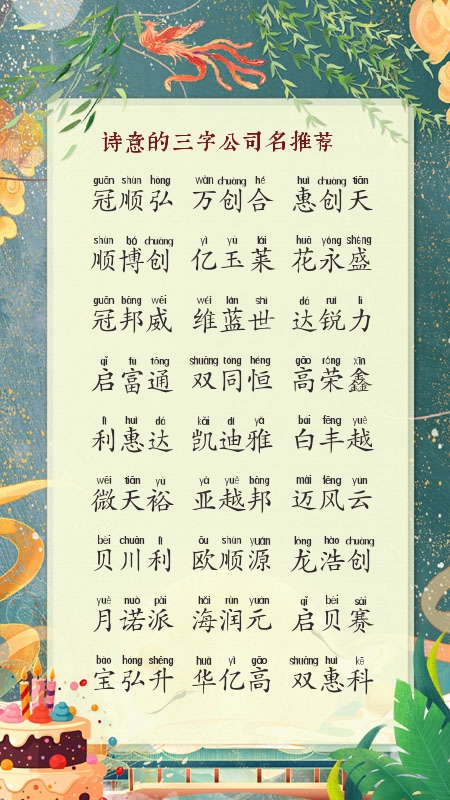 诗意的三字公司名推荐
guān shùn hóng wàn chuàng hé huì chuàng tiān
冠顺弘 万创合 惠创天
shùn bó chuàng yì yù lái huā yǒng shèng
顺博创 亿玉莱 花永盛
guān bāng wēi wéi lán shì dá ruì lì
冠邦威 维蓝世 达锐力
qǐ fù tōng shuāng tóng héng gāo róng xīn
启富通 双同恒 高荣鑫
lì huì dá kǎi dí yǎ bái fēng yuè
利惠达 凯迪雅 白丰越
wēi tiān yù yà yuè bāng mài fēng yún
微天裕 亚越邦 迈风云
bèi chuān lì ōu shùn yuán lóng hào chuàng
贝川利 欧顺源 龙浩创
yuè nuò pài hǎi rùn yuán qǐ bèi sài
月诺派 海润元 启贝赛
bǎo hóng shēng huá yì gāo shuāng huì kē
宝弘升 华亿高 双惠科